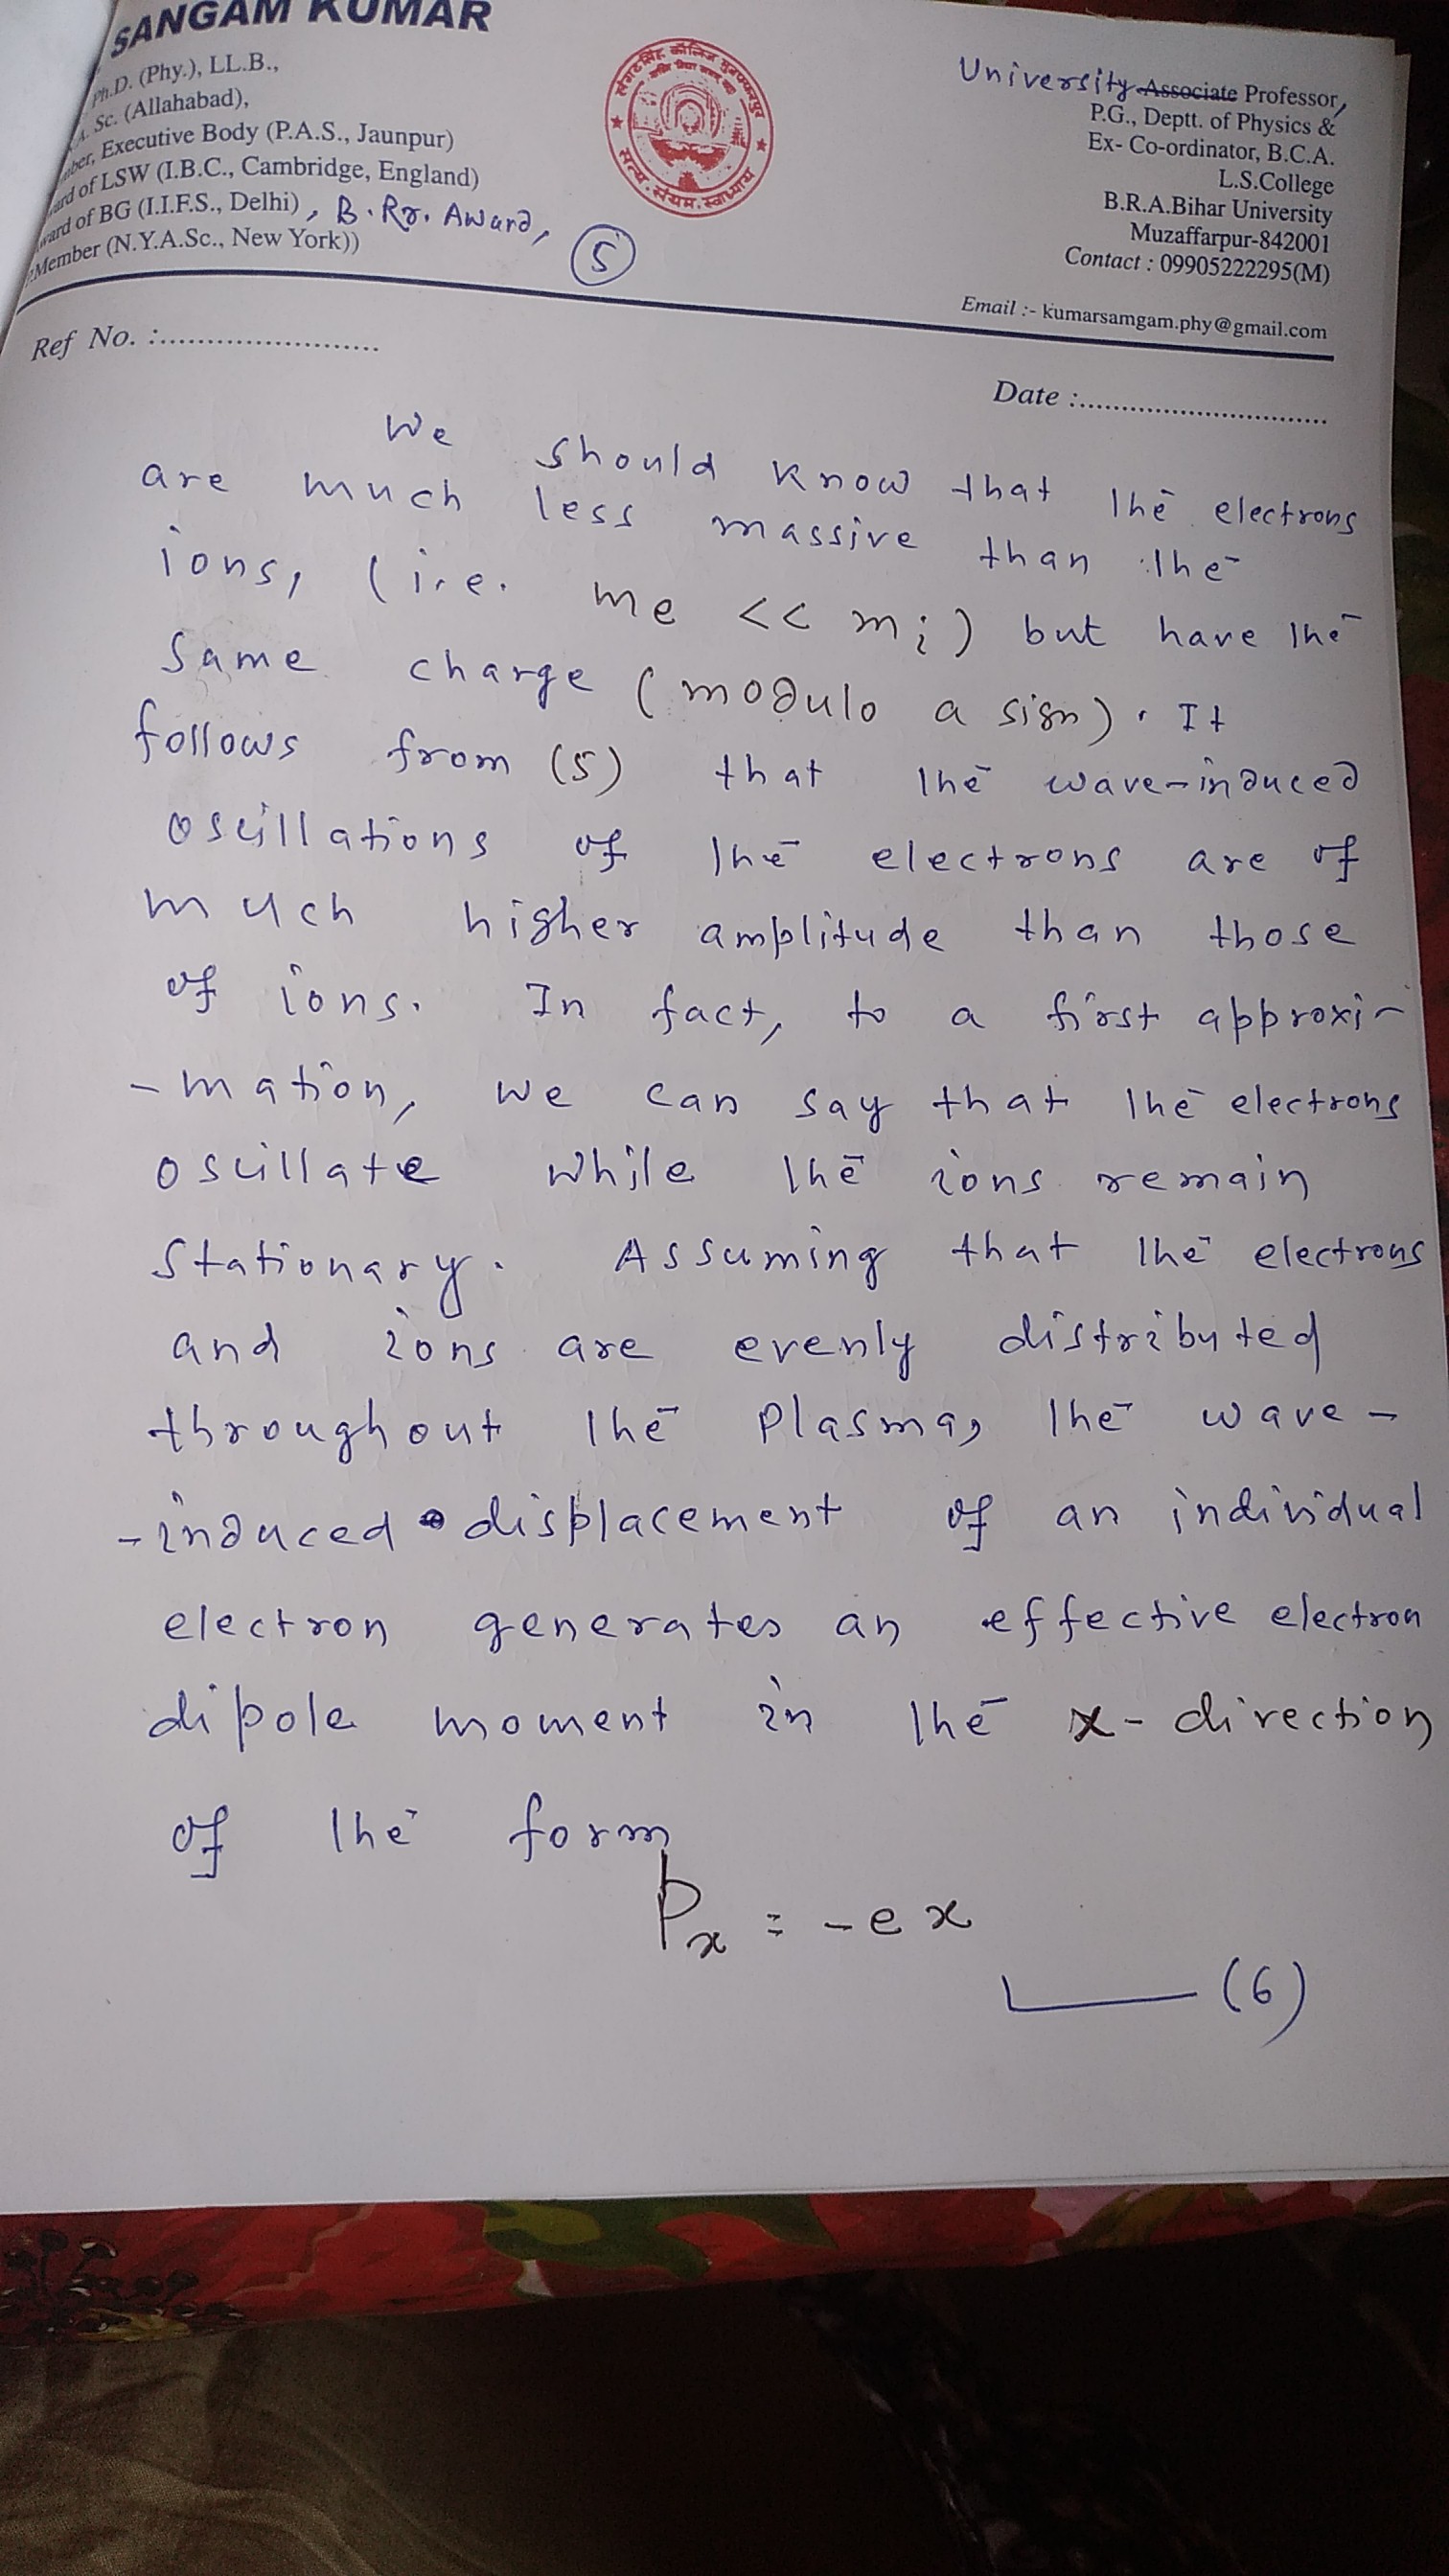 SANGAM KUMAR
Ph.D. (Phy.), LL.B.,
Sc. (Allahabad),
Executive Body (P.A.S., Jaunpur)
of LSW (I.B.C., Cambridge, England)
of BG (I.I.F.S., Delhi), B. Rr. Award,
Member (N.Y.A.Sc., New York))
5
University Associate Professor,
P.G., Deptt. of Physics &
Ex- Co-ordinator, B.C.A.
L.S.College
B.R.A.Bihar University
Muzaffarpur-842001
Contact : 09905222295(M)
Email :- kumarsamgam.phy@gmail.com
Ref No. :.......................
Date :...............................
We should know that the electrons
are much less massive than the
ions, (i.e. me << mi) but have the
same charge (modulo a sign). It
follows from (5) that the wave-induced
oscillations of the electrons are of
much higher amplitude than those
of ions. In fact, to a first approxi-
-mation, we can say that the electrons
oscillate while the ions remain
stationary. Assuming that the electrons
and ions are evenly distributed
throughout the plasma, the wave-
-induced displacement of an individual
electron generates an effective electron
dipole moment in the x-direction
of the form
Px = -ex
(6)